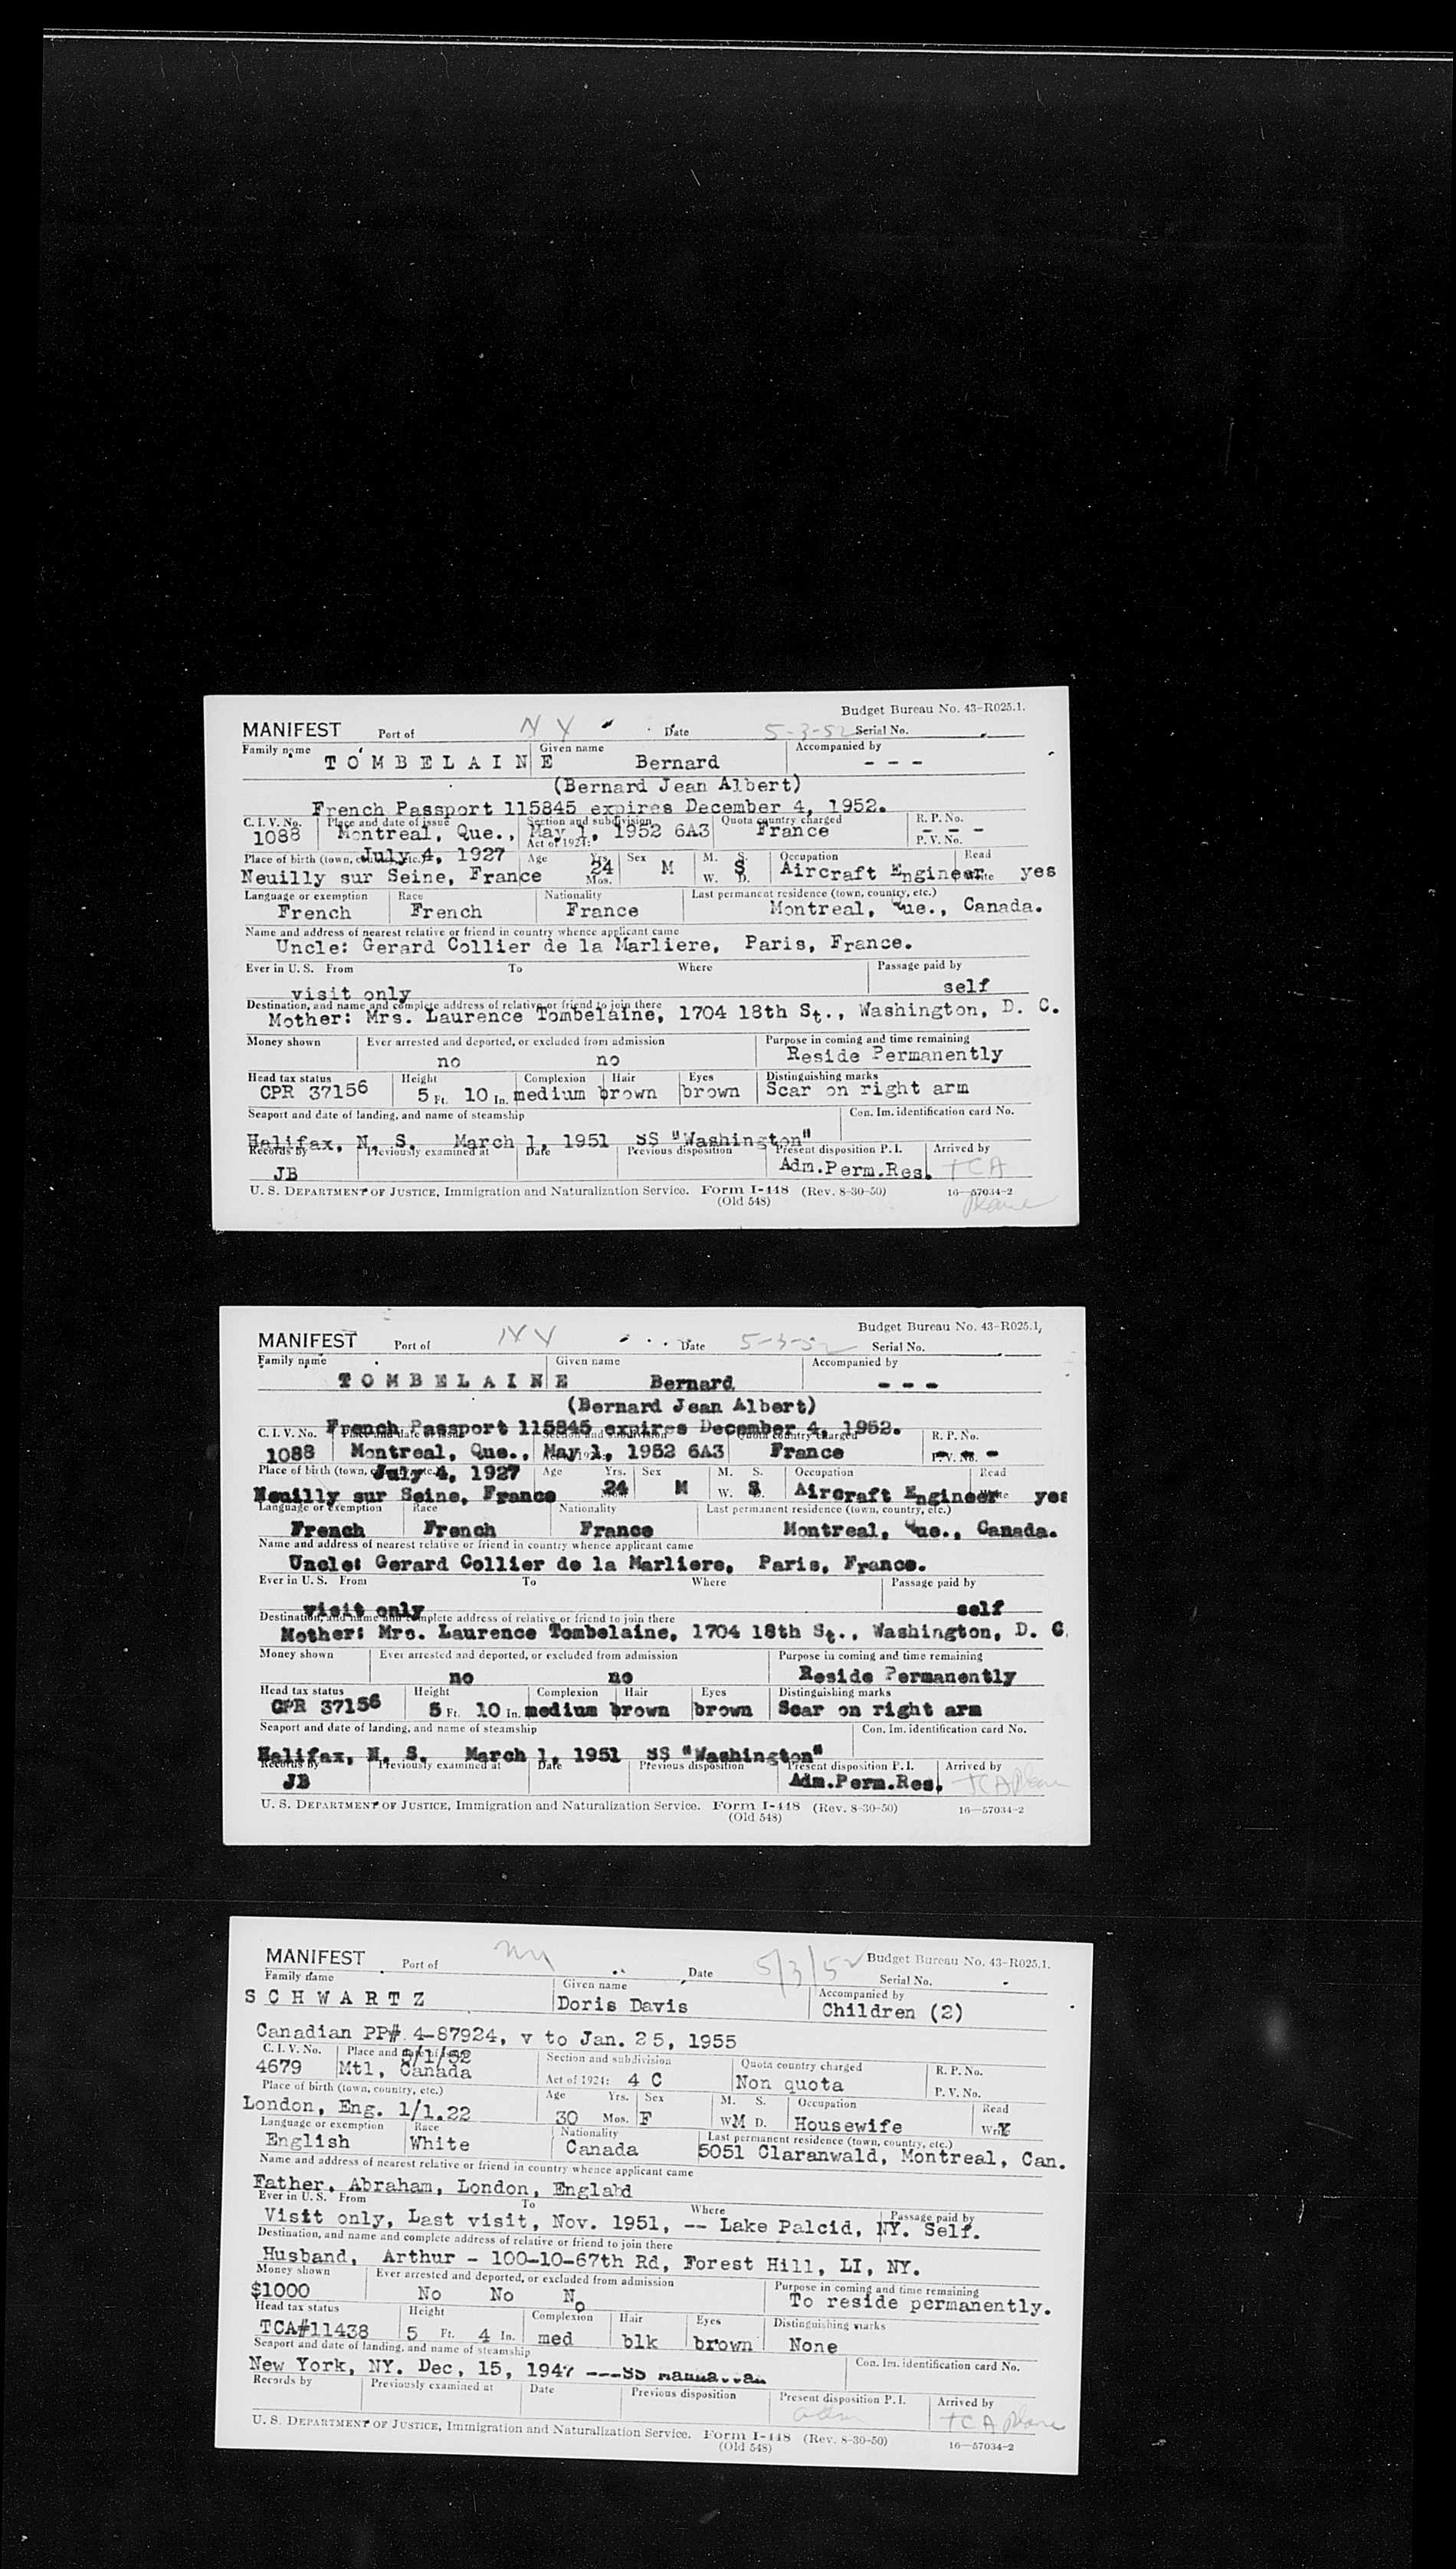 Budget Bureau No. 43-R025.1.
MANIFEST Port of N Y Date 5-3-52 Serial No.
Family name Given name Accompanied by
TOMBELAINE Bernard - - -
(Bernard Jean Albert)
French Passport 115845 expires December 4, 1952.
C. I. V. No. Place and date of issue Section and subdivision Quota country charged R. P. No.
1088 Montreal, Que., May 1, 1952 6A3 France - - -
Act of 1924: P. V. No.
July 4, 1927
Place of birth (town, country, etc.) Age Yrs. Sex M. S. Occupation Read
Neuilly sur Seine, France 24 Mos. M W. S D. Aircraft Engineer Write yes
Language or exemption Race Nationality Last permanent residence (town, country, etc.)
French French France Montreal, Que., Canada.
Name and address of nearest relative or friend in country whence applicant came
Uncle: Gerard Collier de la Marliere, Paris, France.
Ever in U. S. From To Where Passage paid by
visit only self
Destination, and name and complete address of relative or friend to join there
Mother: Mrs. Laurence Tombelaine, 1704 18th St., Washington, D. C.
Money shown Ever arrested and deported, or excluded from admission Purpose in coming and time remaining
no no Reside Permanently
Head tax status Height Complexion Hair Eyes Distinguishing marks
CPR 37156 5 Ft. 10 In. medium brown brown Scar on right arm
Seaport and date of landing, and name of steamship Con. Im. identification card No.
Halifax, N. S. March 1, 1951 SS "Washington"
Records by Previously examined at Date Previous disposition Present disposition P. I. Arrived by
JB Adm.Perm.Res. TCA
U. S. DEPARTMENT OF JUSTICE, Immigration and Naturalization Service. Form I-448 (Rev. 8-30-50) 16—57034-2
(Old 548) Plane
Budget Bureau No. 43-R025.1.
MANIFEST Port of N Y Date 5-3-52 Serial No.
Family name Given name Accompanied by
TOMBELAINE Bernard - - -
(Bernard Jean Albert)
French Passport 115845 expires December 4, 1952.
C. I. V. No. Place and date of issue Section and subdivision Quota country charged R. P. No.
1088 Montreal, Que., May 1, 1952 6A3 France - - -
P. V. No.
July 4, 1927
Place of birth (town, country, etc.) Age Yrs. Sex M. S. Occupation Read
Neuilly sur Seine, France 24 M W. S D. Aircraft Engineer Write yes
Language or exemption Race Nationality Last permanent residence (town, country, etc.)
French French France Montreal, Que., Canada.
Name and address of nearest relative or friend in country whence applicant came
Uncle: Gerard Collier de la Marliere, Paris, France.
Ever in U. S. From To Where Passage paid by
visit only self
Destination, and name and complete address of relative or friend to join there
Mother: Mrs. Laurence Tombelaine, 1704 18th St., Washington, D. C.
Money shown Ever arrested and deported, or excluded from admission Purpose in coming and time remaining
no no Reside Permanently
Head tax status Height Complexion Hair Eyes Distinguishing marks
CPR 37156 5 Ft. 10 In. medium brown brown Scar on right arm
Seaport and date of landing, and name of steamship Con. Im. identification card No.
Halifax, N. S. March 1, 1951 SS "Washington"
Records by Previously examined at Date Previous disposition Present disposition P. I. Arrived by
JB Adm.Perm.Res. TCA Plane
U. S. DEPARTMENT OF JUSTICE, Immigration and Naturalization Service. Form I-448 (Rev. 8-30-50) 16—57034-2
(Old 548)
MANIFEST Port of NY Date 5/3/52 Budget Bureau No. 43-R025.1.
Serial No.
Family name Given name Accompanied by
SCHWARTZ Doris Davis Children (2)
Canadian PP# 4-87924, v to Jan. 25, 1955
C. I. V. No. Place and date of issue Section and subdivision Quota country charged R. P. No.
4679 Mtl, Canada Act of 1924: 4 C Non quota P. V. No.
Place of birth (town, country, etc.) Age Yrs. Sex M. S. Occupation Read
London, Eng. 1/1.22 30 Mos. F W M D. Housewife Write Y
Language or exemption Race Nationality Last permanent residence (town, country, etc.)
English White Canada 5051 Claranwald, Montreal, Can.
Name and address of nearest relative or friend in country whence applicant came
Father, Abraham, London, England
Ever in U. S. From To Where Passage paid by
Visit only, Last visit, Nov. 1951, -- Lake Palcid, NY. Self.
Destination, and name and complete address of relative or friend to join there
Husband, Arthur - 100-10-67th Rd, Forest Hill, LI, NY.
Money shown Ever arrested and deported, or excluded from admission Purpose in coming and time remaining
$1000 No No No To reside permanently.
Head tax status Height Complexion Hair Eyes Distinguishing marks
TCA#11438 5 Ft. 4 In. med blk brown None
Seaport and date of landing, and name of steamship Con. Im. identification card No.
New York, NY. Dec, 15, 1947 ---SS
Records by Previously examined at Date Previous disposition Present disposition P. I. Arrived by
adm TCA Plane
U. S. DEPARTMENT OF JUSTICE, Immigration and Naturalization Service. Form I-448 (Rev. 8-30-50) 16—57034-2
(Old 548)